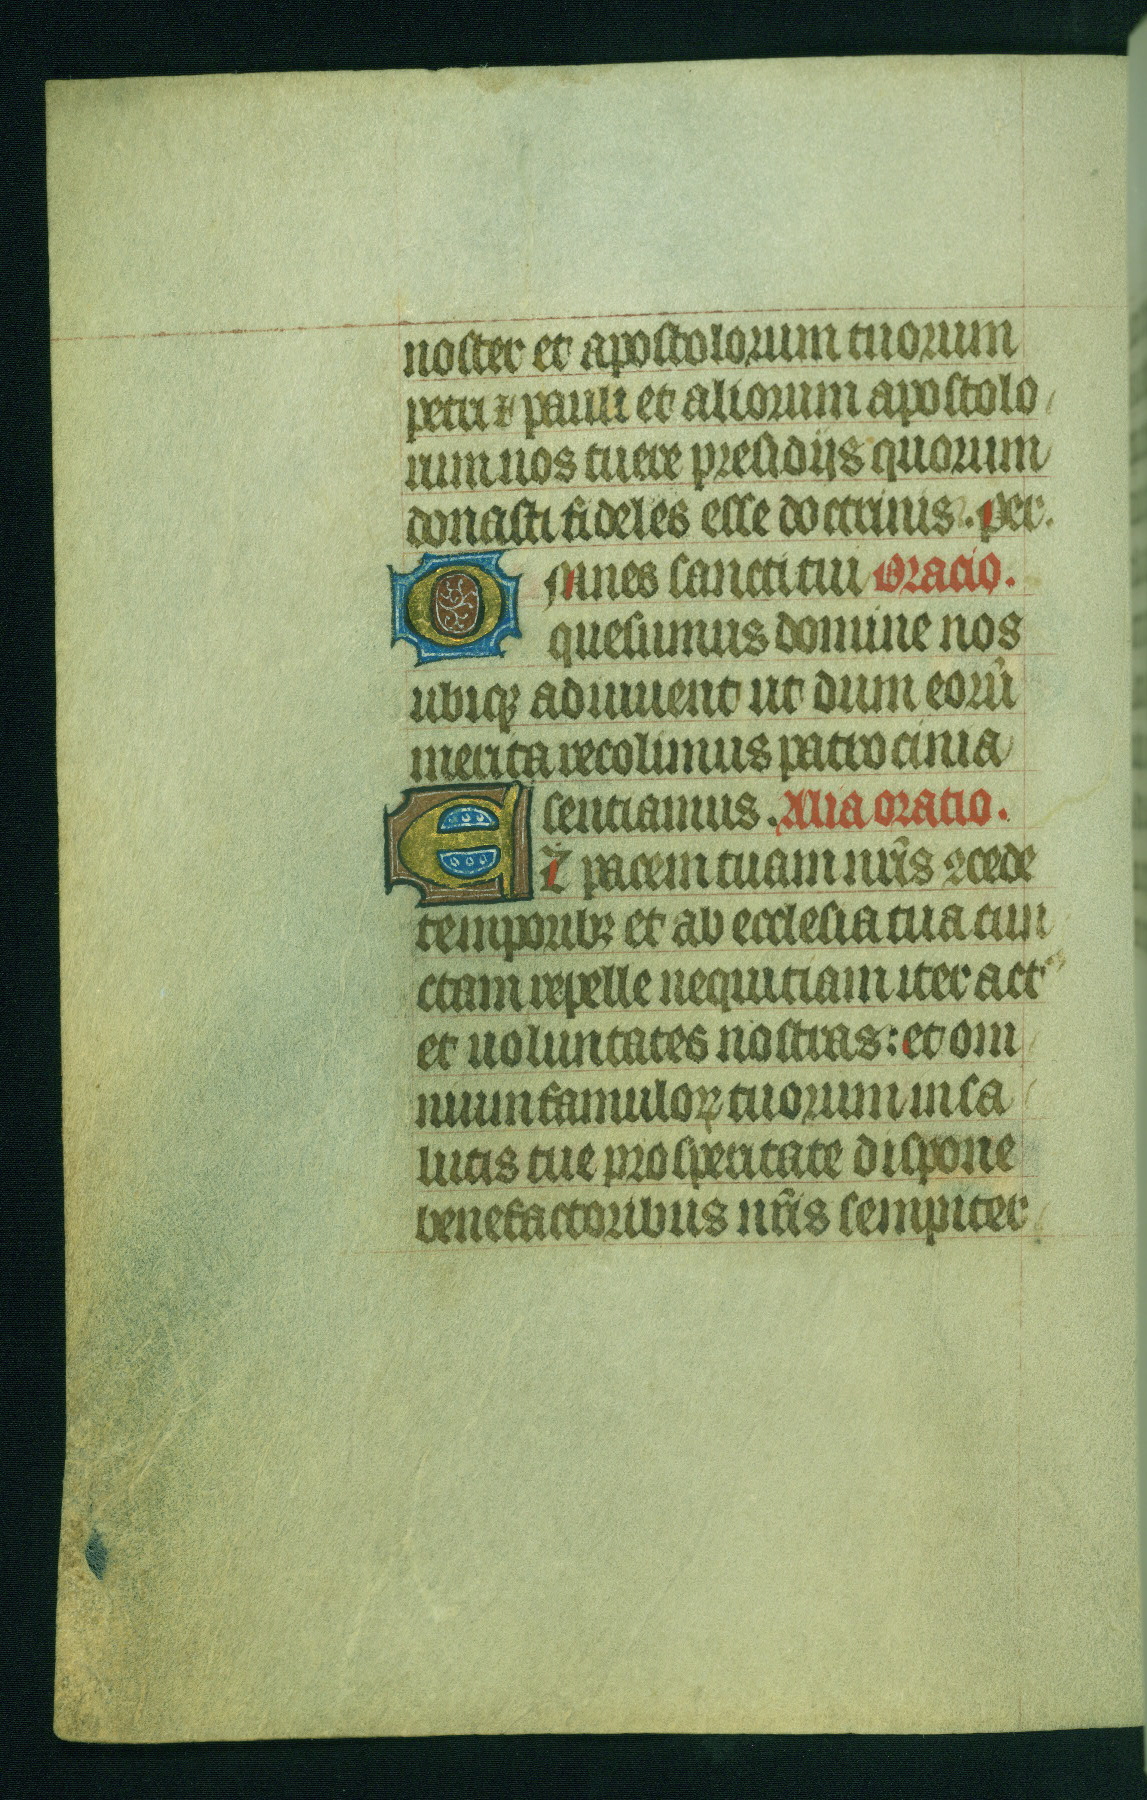 noster et apostolorum tuorum
petri ⁊ pauli et aliorum apostolo
rum nos tuere presidijs quorum
donasti fideles esse doctrinis. Per.
Omnes sancti tui Oracio.
quesumus domine nos
ubiqꝫ adiuuent ut dum eorū
merita recolimus patrocinia
sentiamus. Alia oratio.
Et pacem tuam nr̄is ꝯcede
temporibꝫ et ab ecclesia tua cun
ctam repelle nequitiam iter act᷒
et uoluntates nostras: et om
nium famuloꝝ tuorum in sa
lutis tue prosperitate dispone
benefactoribus nr̄is sempiter